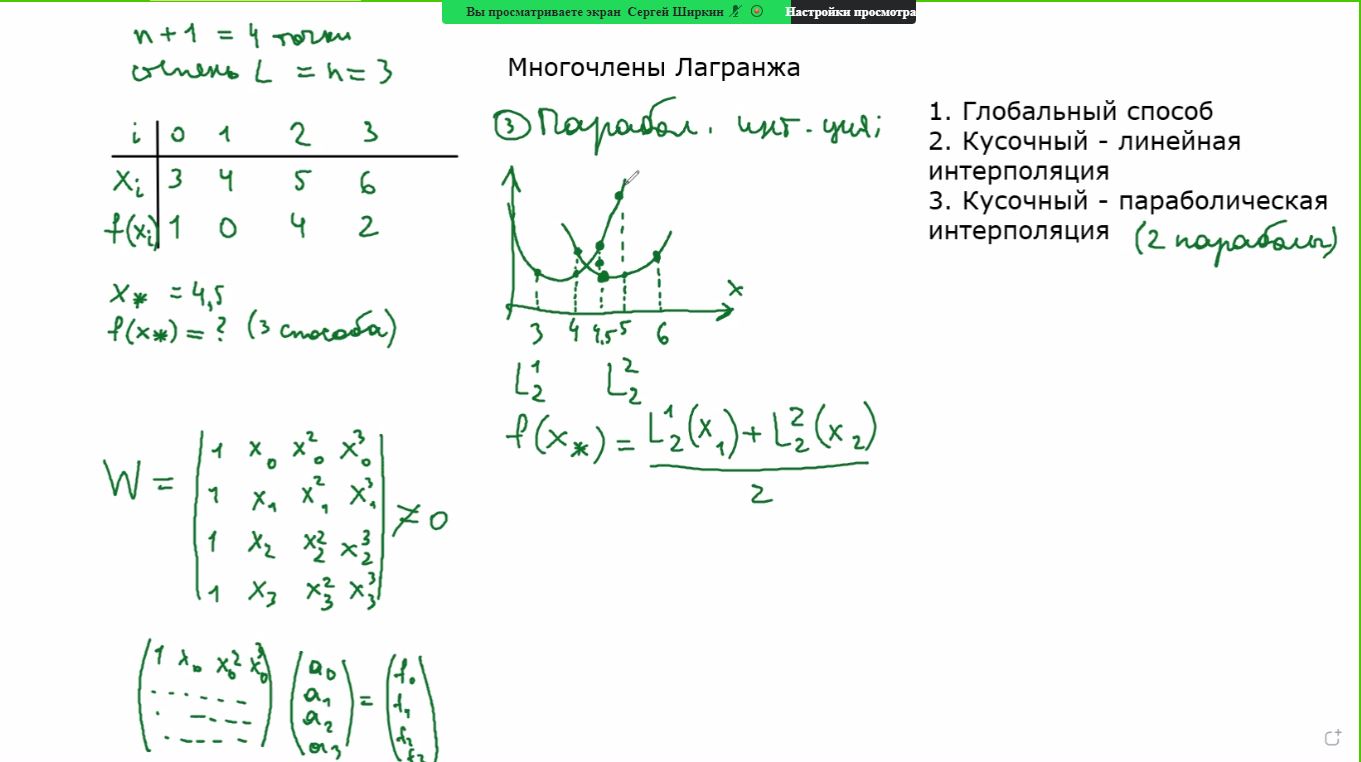 Вы просматриваете экран Сергей Ширкин
Настройки просмотра
n+1 = 4 точки
степень L = n = 3
i 0 1 2 3
xᵢ 3 4 5 6
f(xᵢ) 1 0 4 2
x* = 4,5
f(x*) = ? (3 способа)
W = | 1 x₀ x₀² x₀³
1 x₁ x₁² x₁³
1 x₂ x₂² x₂³
1 x₃ x₃² x₃³ | ≠ 0
( 1 x₀ x₀² x₀³ ) ( a₀ a₁ a₂ a₃ ) = ( f₀ f₁ f₂ f₃ )
Многочлены Лагранжа
③ Парабол. инт-ция;
x
3 4 4,5 5 6
L₂¹ L₂²
f(x*) = (L₂¹(x₁) + L₂²(x₂)) / 2
1. Глобальный способ
2. Кусочный - линейная
интерполяция
3. Кусочный - параболическая
интерполяция (2 параболы)